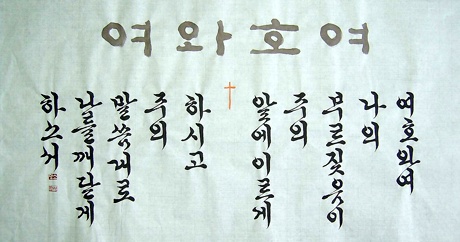 여호와여
여호와여
나의
부르짖음이
주의
앞에 이르게
하시고
주의
말씀대로
나를 깨닫게
하소서